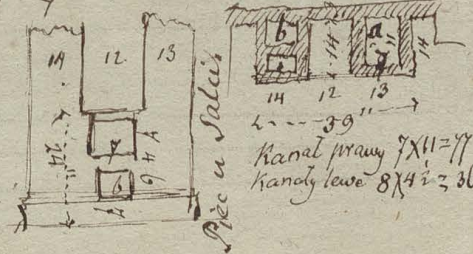 14 12 13
7
4
4
6
6
14"
7
Piec u Salcis
b
a
14
7
11
14
14 12 13
39"
Kanał prawy 7X11=77
Kanały lewe 8X4½=36